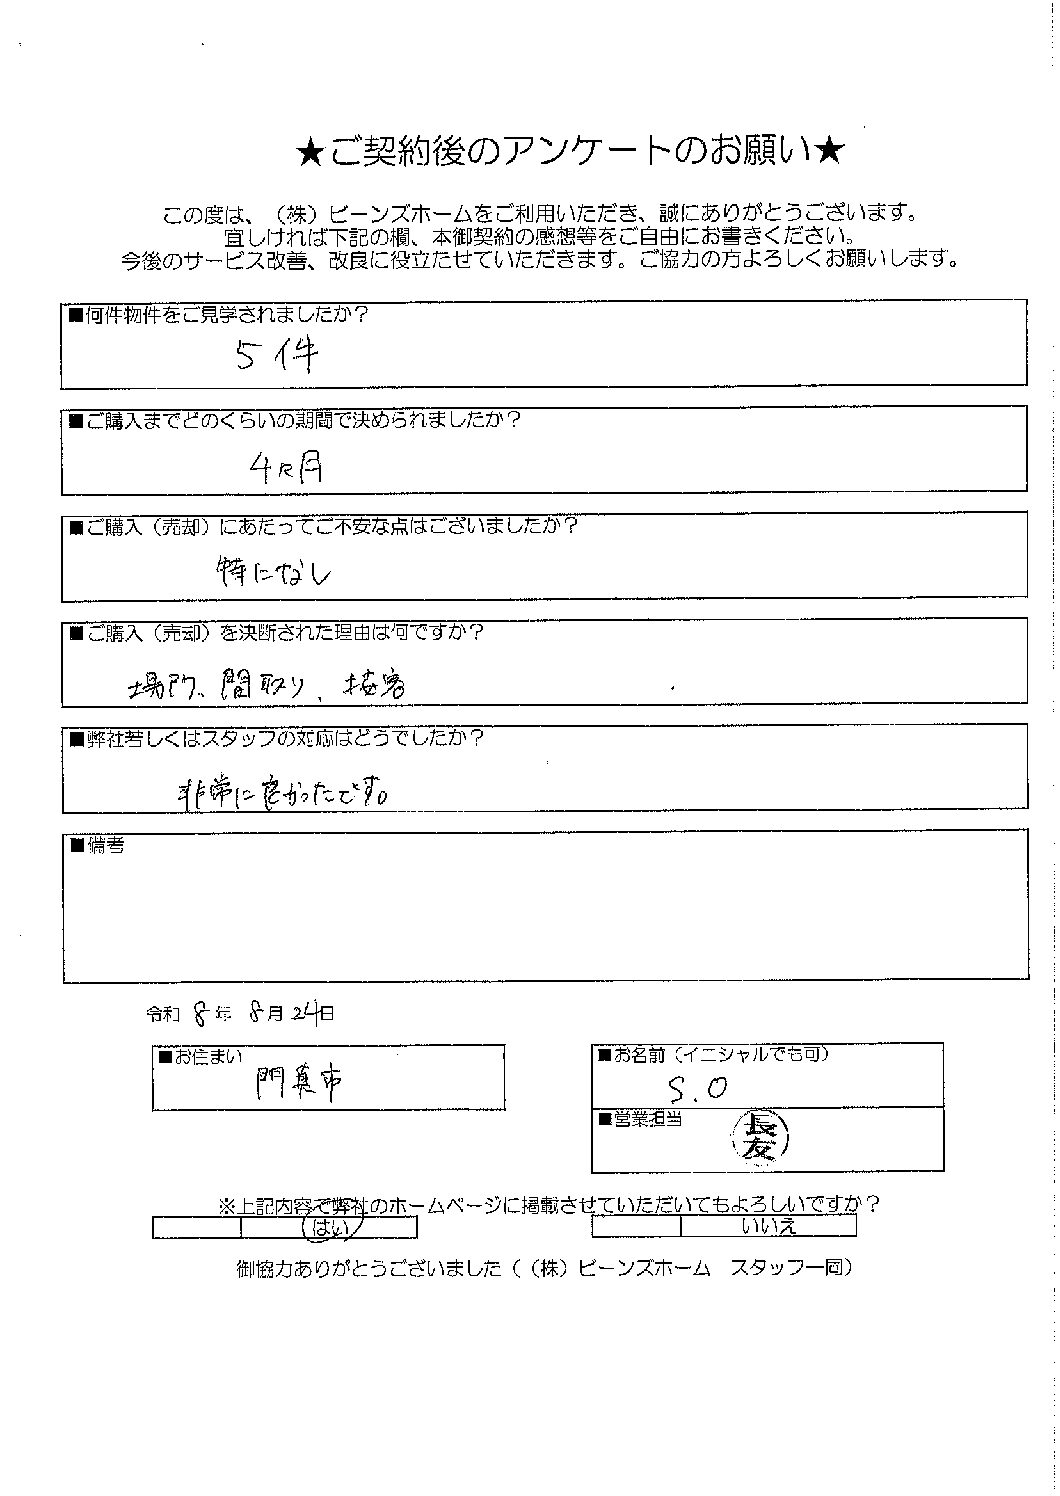 ★ご契約後のアンケートのお願い★
この度は、（株）ビーンズホームをご利用いただき、誠にありがとうございます。
宜しければ下記の欄、本御契約の感想等をご自由にお書きください。
今後のサービス改善、改良に役立たせていただきます。ご協力の方よろしくお願いします。
■何件物件をご見学されましたか？
5件
■ご購入までどのくらいの期間で決められましたか？
4ヶ月
■ご購入（売却）にあたってご不安な点はございましたか？
特になし
■ご購入（売却）を決断された理由は何ですか？
場所、間取り、接客
■弊社若しくはスタッフの対応はどうでしたか？
非常に良かったです。
■備考
令和 8年 8月24日
■お住まい
門真市
■お名前（イニシャルでも可）
S.O
■営業担当
長友
※上記内容で弊社のホームページに掲載させていただいてもよろしいですか？
はい いいえ
御協力ありがとうございました（（株）ビーンズホーム　スタッフ一同）